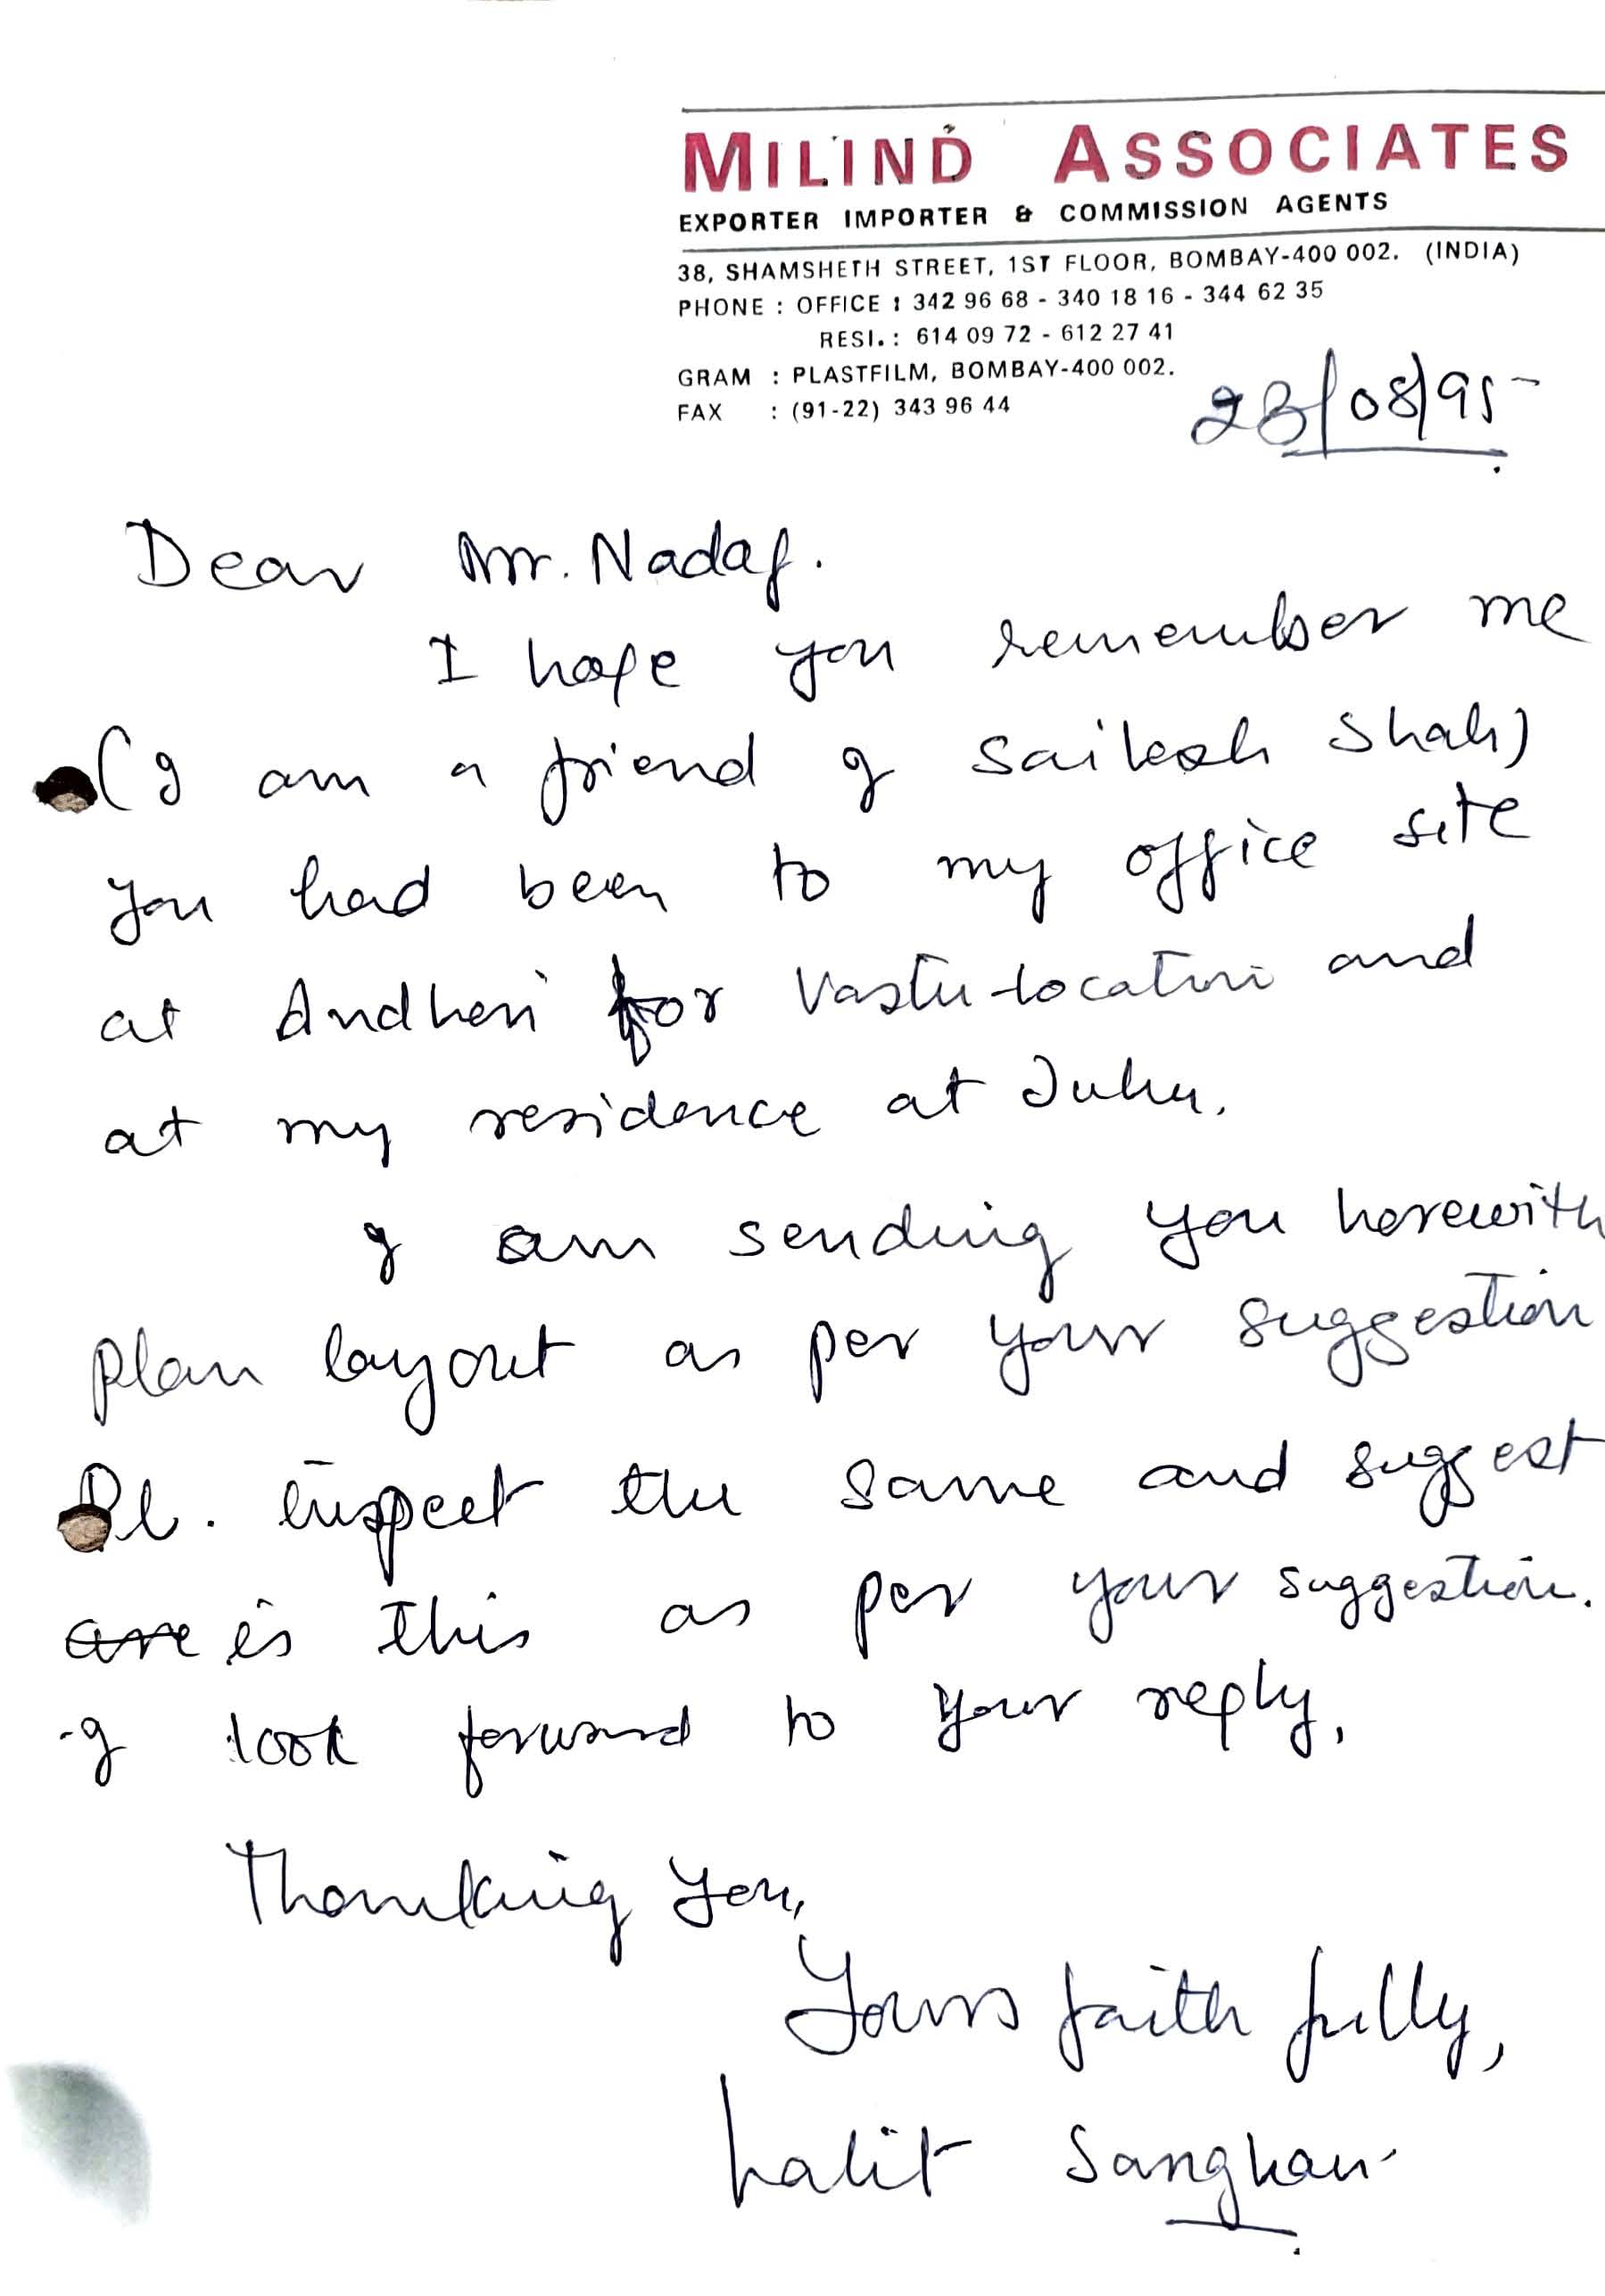 MILIND ASSOCIATES
EXPORTER IMPORTER & COMMISSION AGENTS
38, SHAMSHETH STREET, 1ST FLOOR, BOMBAY-400 002. (INDIA)
PHONE : OFFICE : 342 96 68 - 340 18 16 - 344 62 35
RESI. : 614 09 72 - 612 27 41
GRAM : PLASTFILM, BOMBAY-400 002.
FAX : (91-22) 343 96 44
23/08/95
Dear Mr. Nadaf.
I hope you remember me
(I am a friend of Sailesh Shah)
You had been to my office site
at Andheri for Vastu-location and
at my residence at Juhu.
I am sending you herewith
plan layout as per your suggestion
Pl. inspect the same and suggest
are is this as per your suggestion.
I look forward to your reply,
Thanking you,
Yours faithfully,
Lalit